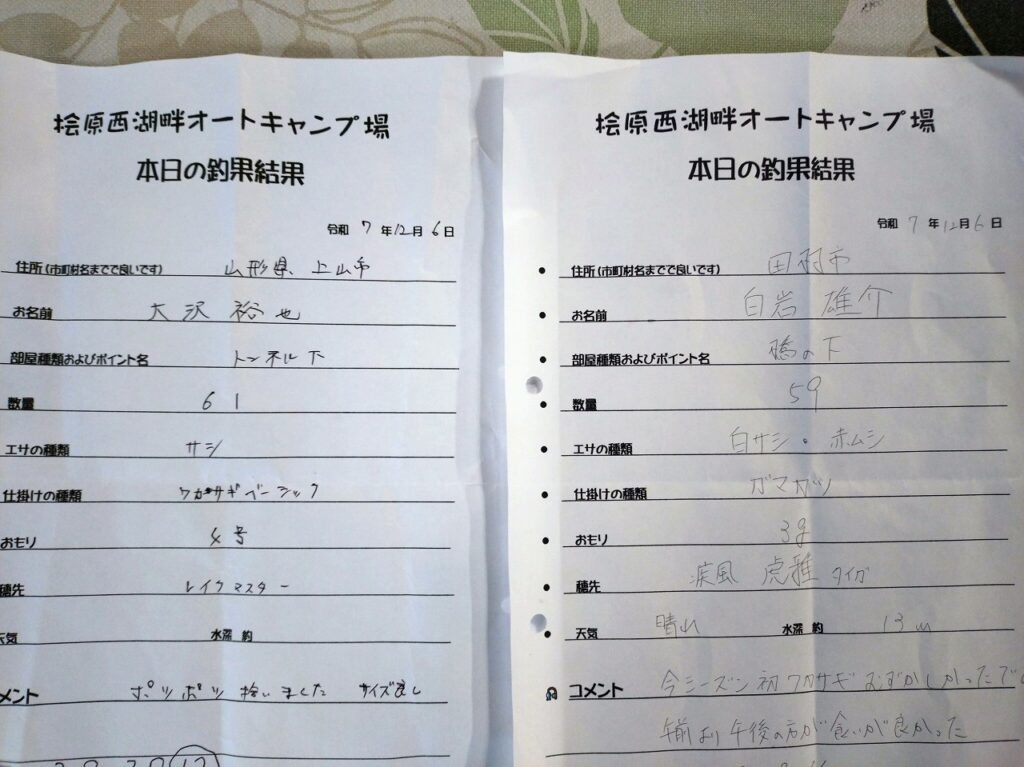 桧原西湖畔オートキャンプ場
本日の釣果結果
令和 7 年 12 月 6 日
住所(市町村名までで良いです) 山形県 上山市
お名前 大沢 裕也
部屋種類およびポイント名 トンネル下
数量 61
エサの種類 サシ
仕掛けの種類 ワカサギベーシック
おもり 4号
穂先 レイクマスター
天気 水深 約
メント ポツポツ拾いました サイズ良し
桧原西湖畔オートキャンプ場
本日の釣果結果
令和 7 年 12 月 6 日
住所(市町村名までで良いです) 田村市
お名前 白岩 雄介
部屋種類およびポイント名 橋の下
数量 59
エサの種類 白サシ・赤ムシ
仕掛けの種類 ガマカツ
おもり 3g
穂先 疾風 虎雅 タイガ
天気 晴れ 水深 約 13m
コメント 今シーズン初ワカサギ むずかしかったで
午前より午後の方が食いが良かった